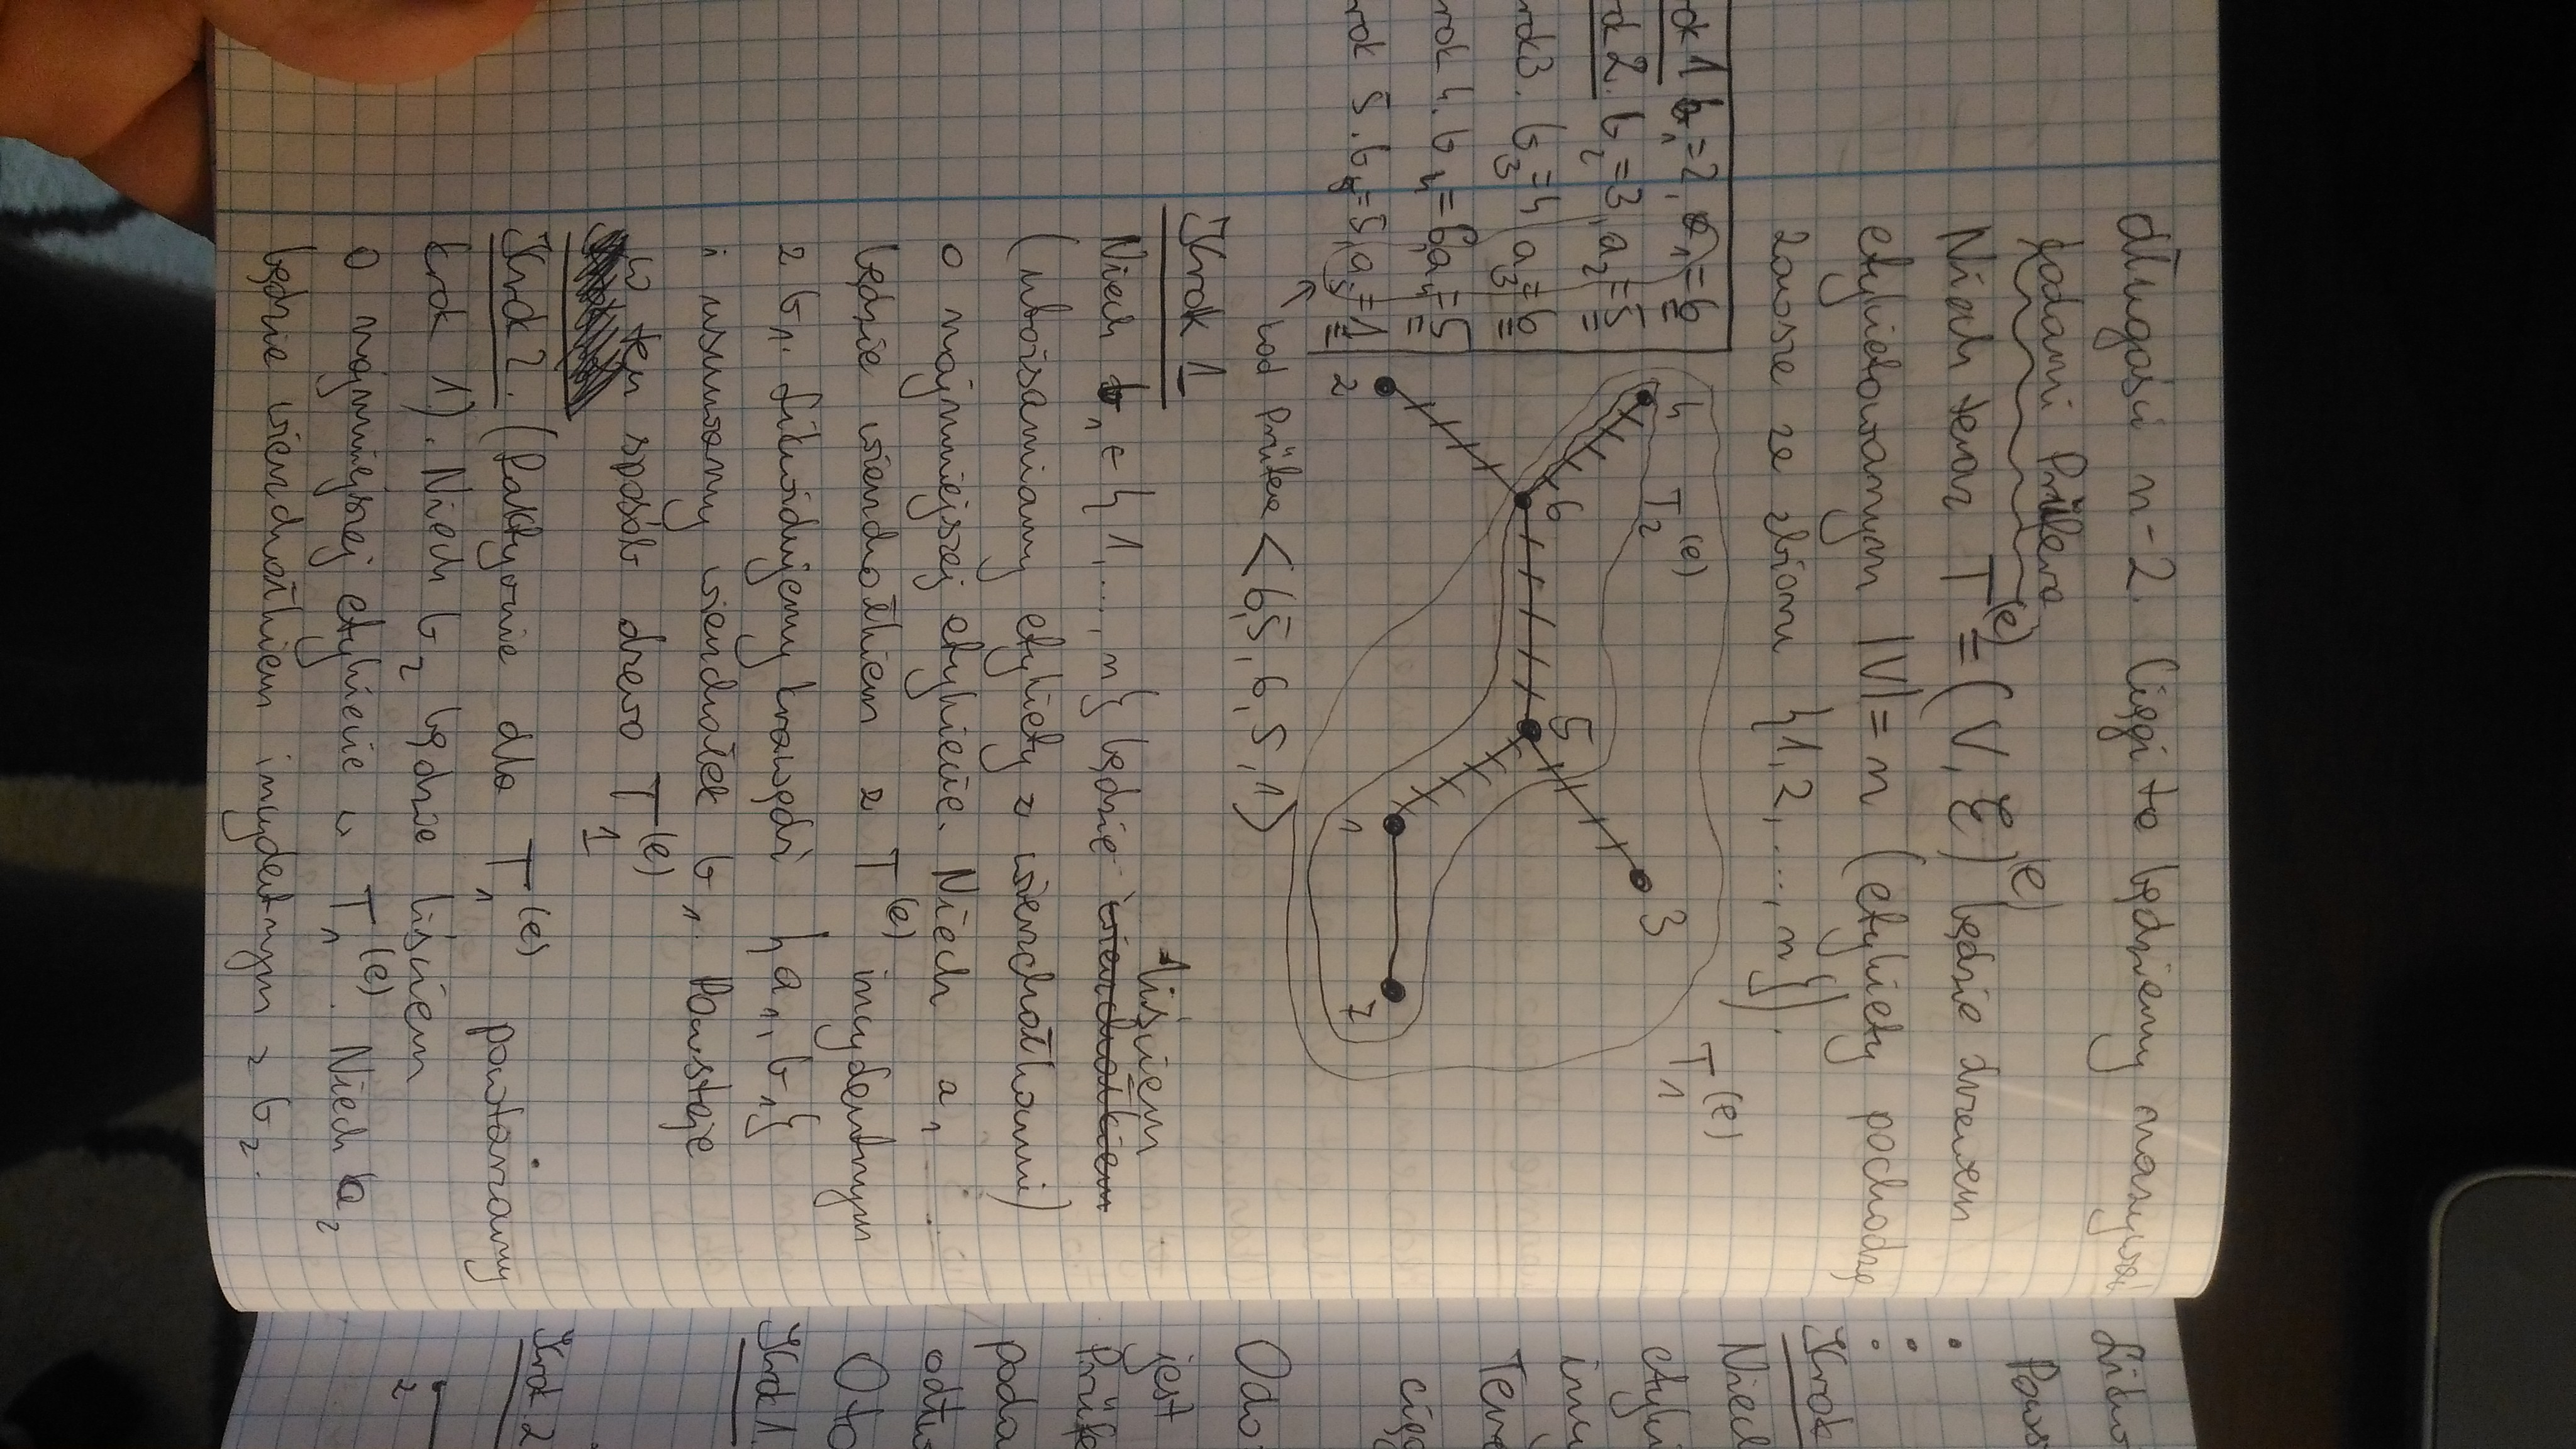 długości n-2. Ciągi te będziemy nazywać
kodami Prüfera.
Niech teraz T^(e) = (V, E)^(e) będzie drzewem
etykietowanym |V| = n (etykiety pochodzą
zawsze ze zbioru {1, 2, ..., n}).
ok 1 b₁=2, a₁=6
ok 2. b₂=3, a₂=5
rok 3. b₃=4 a₃=6
rok 4. b₄=6, a₄=5
rok 5. b₅=5, a₅=1
4 T₂^(e) 3 T₁^(e)
6 5
2 1 7
kod Prüfera <6,5,6,5,1>
Krok 1
liściem
Niech b₁ ∈ {1, ..., n} będzie wierzchołkiem
(utożsamiamy etykiety z wierzchołkami)
o najmniejszej etykiecie. Niech a₁
będzie wierzchołkiem z T^(e) incydentnym
z b₁. Likwidujemy krawędź {a₁, b₁}
i usuwamy wierzchołek b₁. Powstaje
w ten sposób drzewo T₁^(e)
Krok 2. (Faktycznie dla T₁^(e) powtarzamy
krok 1). Niech b₂ będzie liściem
o najmniejszej etykiecie w T₁^(e). Niech a₂
będzie wierzchołkiem incydentnym z b₂.
Likw
Pows
Krok
Niech
etyki
incy
Tera
ciąg
Odw
jest
Prüfe
poda
odtw
Oto
Krok 1.
Krok 2
2